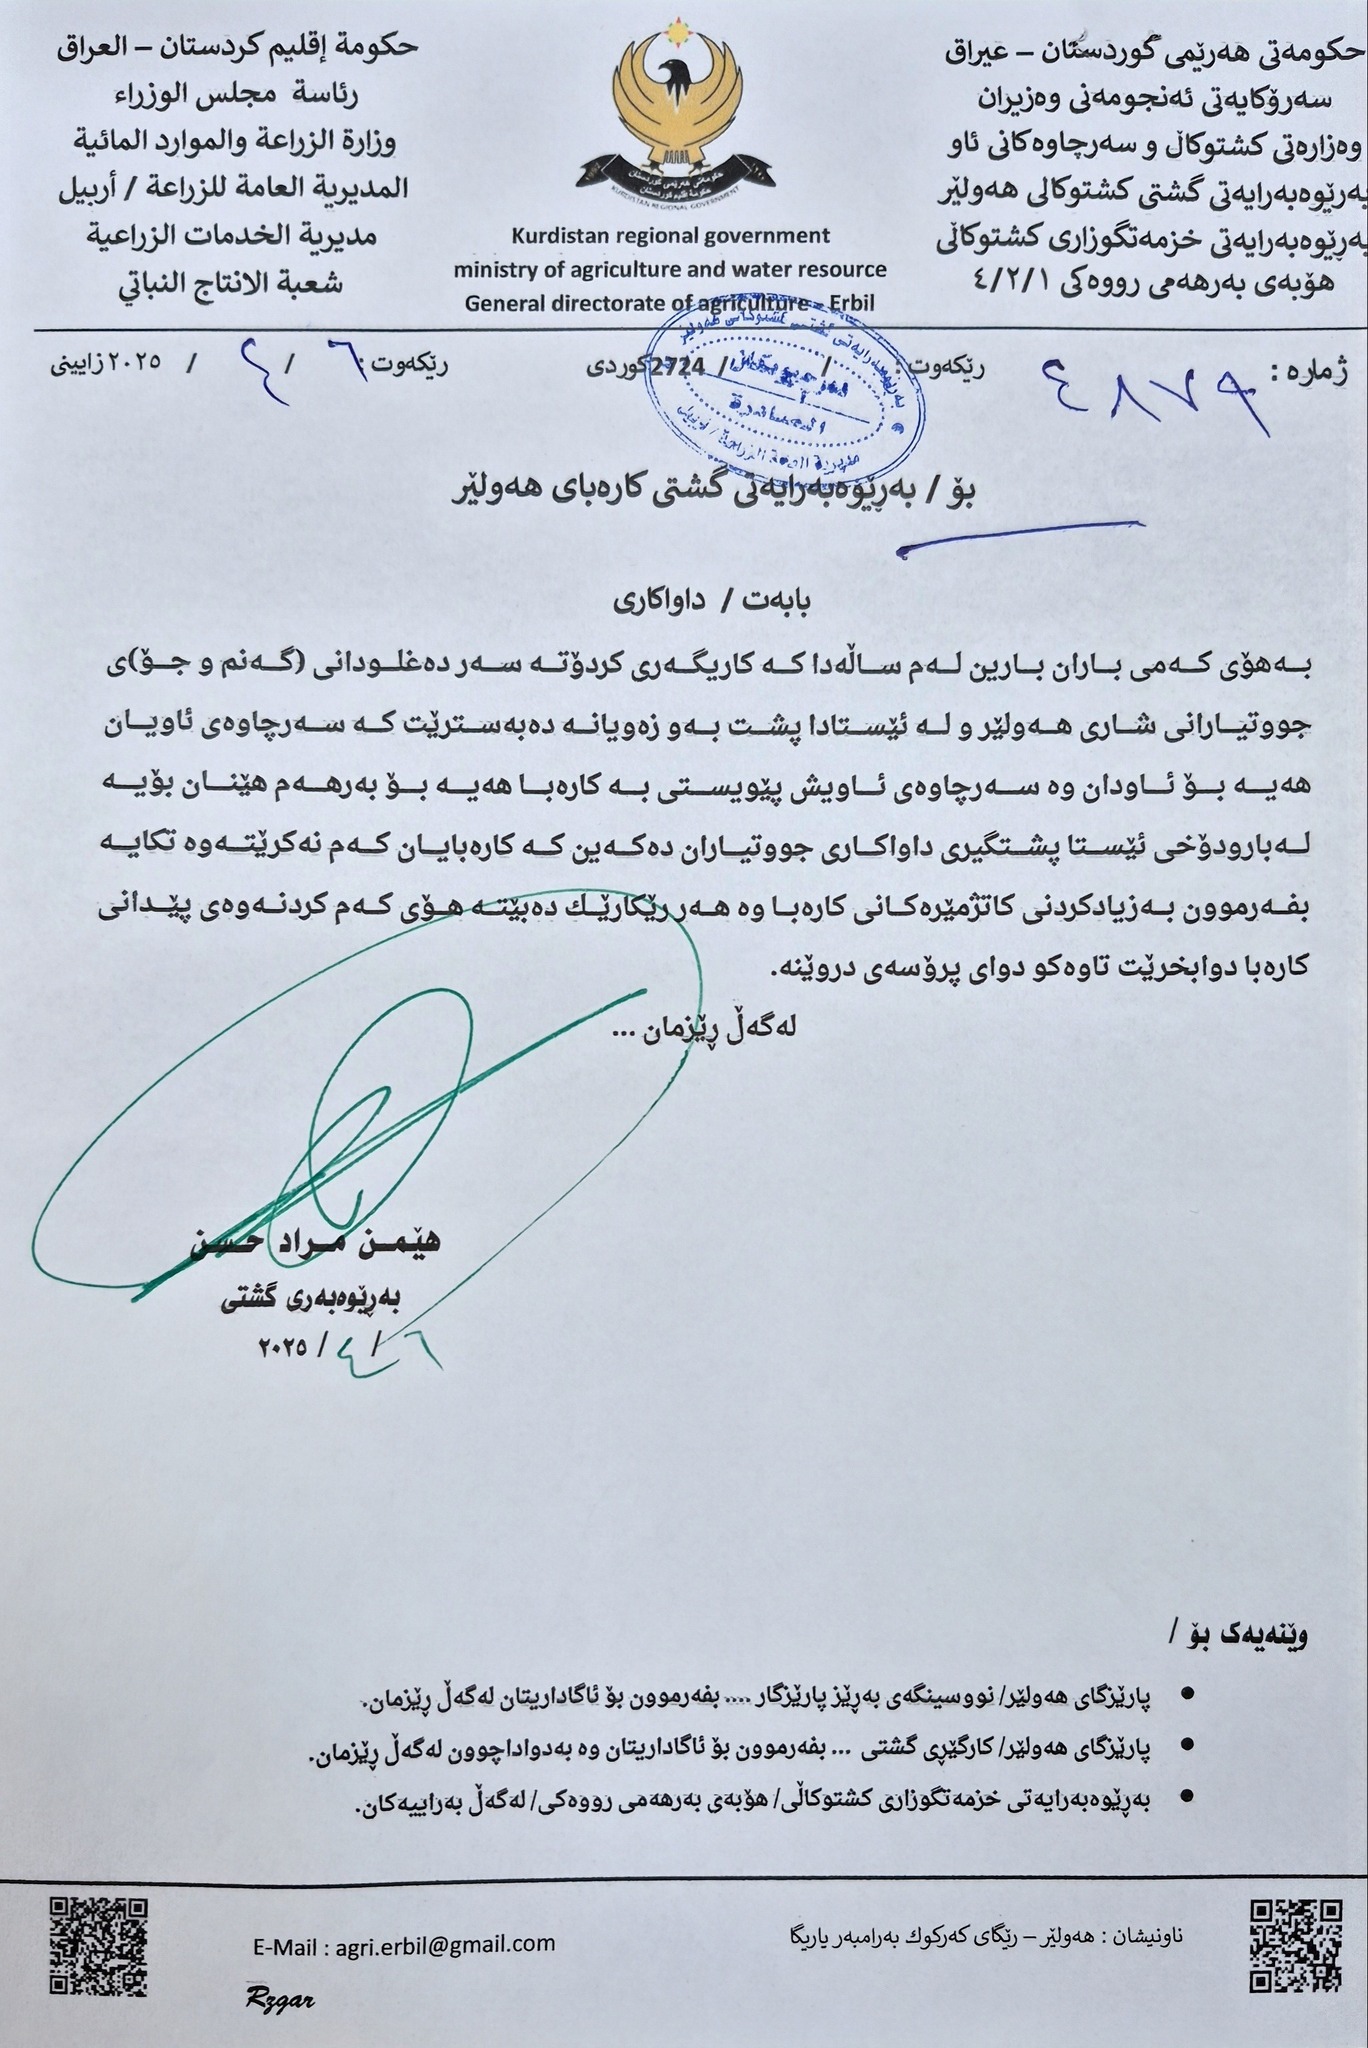 حکومەتی هەرێمی کوردستان – عیراق
سەرۆکایەتی ئەنجومەنی وەزیران
وەزارەتی کشتوکاڵ و سەرچاوەکانی ئاو
بەڕێوەبەرایەتی گشتی کشتوکالی هەولێر
بەڕێوەبەرایەتی خزمەتگوزاری کشتوکاڵی
هۆبەی بەرهەمی رووەکی ٤/٢/١
حكومة إقليم كردستان – العراق
رئاسة مجلس الوزراء
وزارة الزراعة والموارد المائية
المديرية العامة للزراعة / أربيل
مديرية الخدمات الزراعية
شعبة الانتاج النباتي
KURDISTAN REGIONAL GOVERNMENT
Kurdistan regional government
ministry of agriculture and water resource
General directorate of agriculture - Erbil
ژمارە : ٤٨٧٩
ڕێکەوت : / / 2724کوردی
ڕێکەوت : ٦ / ٤ / ٢٠٢٥ زایینی
بۆ / بەڕێوەبەرایەتی گشتی کارەبای هەولێر
بابەت / داواکاری
بەهۆی کەمی باران بارین لەم ساڵەدا کە کاریگەری کردۆتە سەر دەغلودانی (گەنم و جۆ)ی
جووتیارانی شاری هەولێر و لە ئێستادا پشت بەو زەویانە دەبەسترێت کە سەرچاوەی ئاویان
هەیە بۆ ئاودان وە سەرچاوەی ئاویش پێویستی بە کارەبا هەیە بۆ بەرهەم هێنان بۆیە
لەبارودۆخی ئێستا پشتگیری داواکاری جووتیاران دەکەین کە کارەبایان کەم نەکرێتەوە تکایە
بفەرموون بەزیادکردنی کاتژمێرەکانی کارەبا وە هەر رێکارێك دەبێتە هۆی کەم کردنەوەی پێدانی
کارەبا دوابخرێت تاوەکو دوای پرۆسەی دروێنە.
لەگەڵ ڕێزمان ...
هێمن مراد حسن
بەڕێوەبەری گشتی
٦ / ٤ / ٢٠٢٥
وێنەیەک بۆ /
• پارێزگای هەولێر/ نووسینگەی بەڕێز پارێزگار .... بفەرموون بۆ ئاگاداریتان لەگەڵ ڕێزمان.
• پارێزگای هەولێر/ کارگێڕی گشتی ... بفەرموون بۆ ئاگاداریتان وە بەدواداچوون لەگەڵ ڕێزمان.
• بەڕێوەبەرایەتی خزمەتگوزاری کشتوکاڵی/ هۆبەی بەرهەمی رووەکی/ لەگەڵ بەراییەکان.
ناونیشان : هەولێر – رێگای کەرکوك بەرامبەر یاریگا
E-Mail : agri.erbil@gmail.com
Rzgar